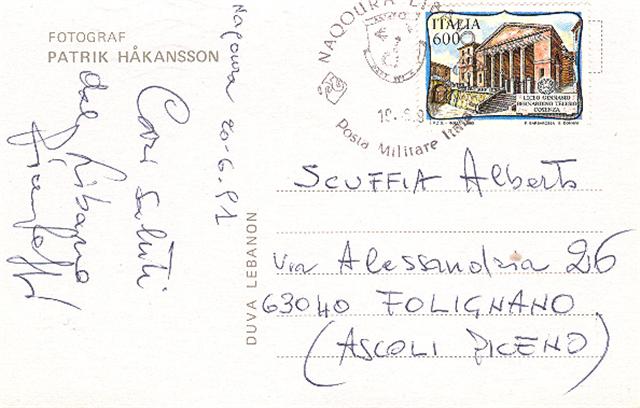 FOTOGRAF
PATRIK HÅKANSSON
Naqoura 20-6.91
Cari saluti
dal Libano
DUVA LEBANON
NAQOURA
Posta Militare
ITALIA
600
LICEO GINNASIO
BERNARDINO TELESIO
COSENZA
SCUFFIA Alberto
Via Alessandria 26
63040 FOLIGNANO
(ASCOLI PICENO)